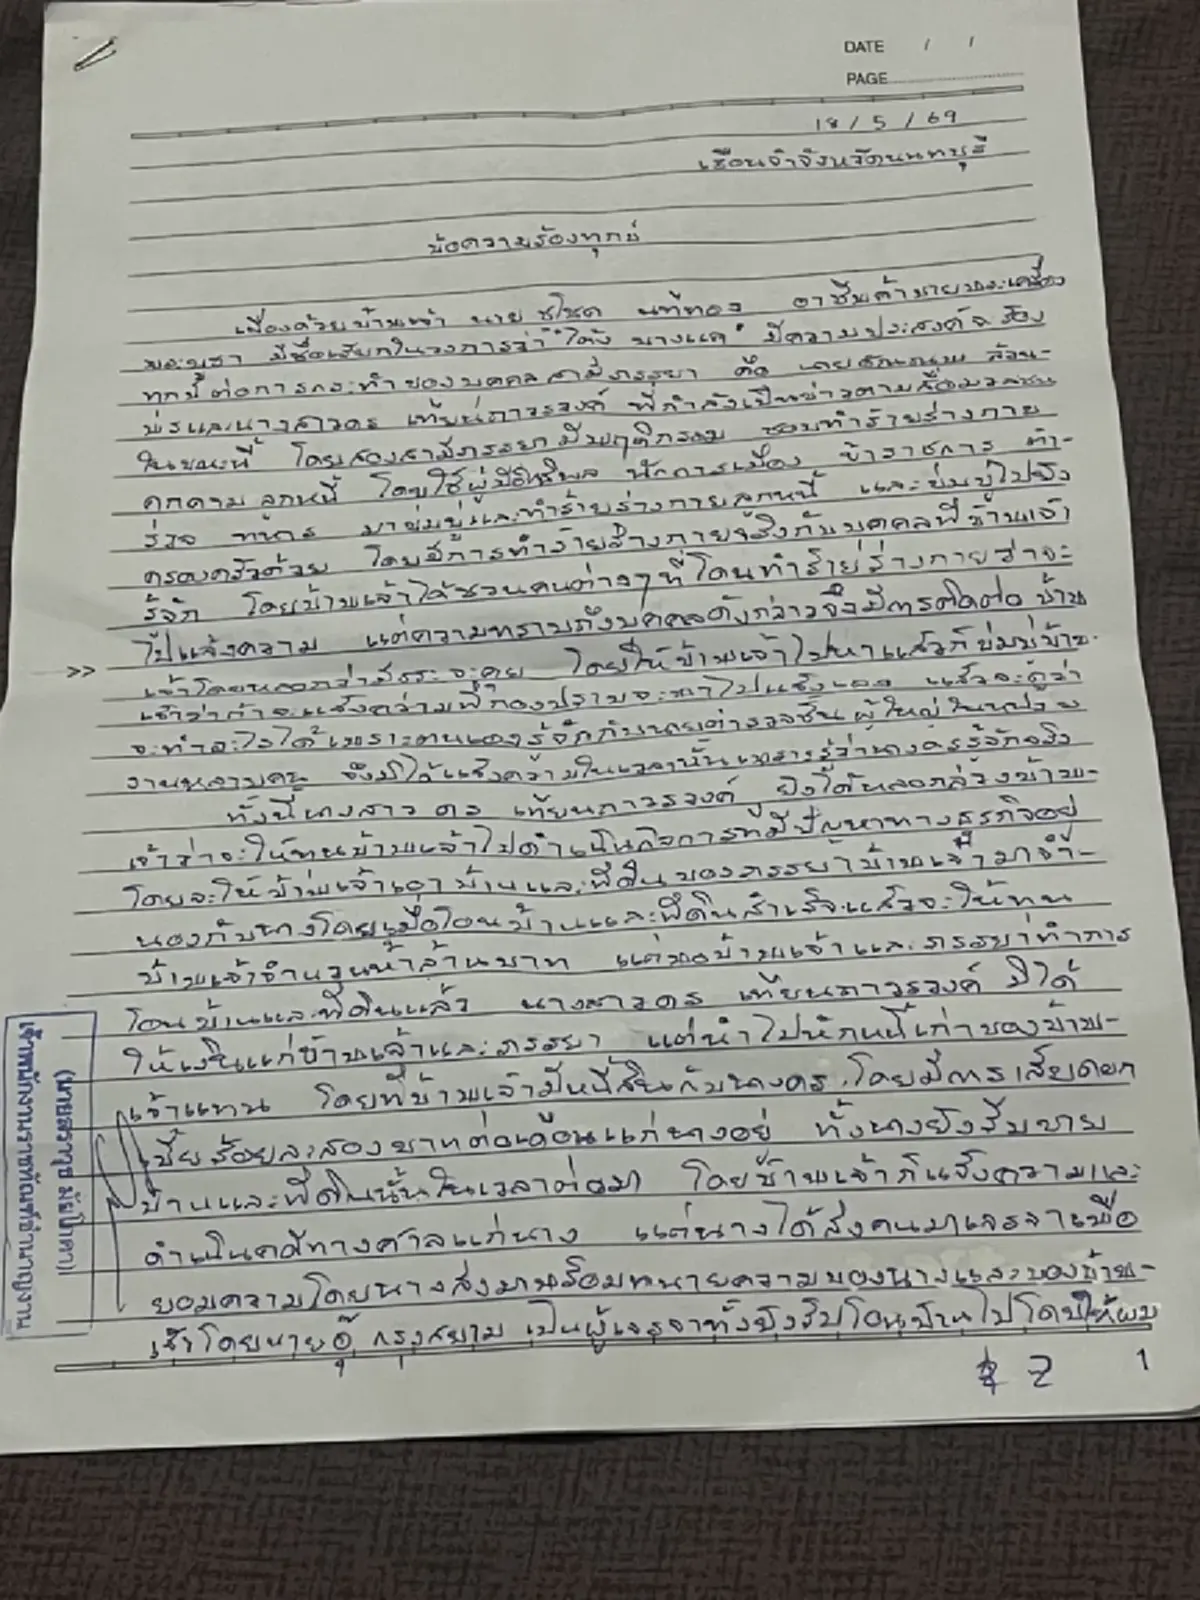 DATE / /
PAGE
18 / 5 / 69
เรือนจำจังหวัดนนทบุรี
ข้อความร้องทุกข์
เนื่องด้วยข้าพเจ้า นาย ชโชต นทีทอง อาชีพค้าขายพระเครื่อง
พระบูชา มีชื่อเรียกในวงการว่า "โต้ง บางแค" มีความประสงค์จะร้อง
ทุกข์ต่อการกระทำของบุคคลสามีภรรยา คือ นาย ล้วน-
พรและนางสาวดร เทียนถาวรวงค์ ที่กำลังเป็นข่าวตามสื่อมวลชน
ในขณะนี้ โดยสองสามีภรรยามีพฤติกรรม ชอบทำร้ายร่างกาย
คุกคามลูกหนี้ โดยใช้ผู้มีอิทธิพล นักการเมือง ข้าราชการ ตำ-
รวจ ทหาร มาข่มขู่และทำร้ายร่างกายลูกหนี้ และข่มขู่ไปยัง
ครอบครัวด้วย โดยมีการทำร้ายร่างกายจริงกับบุคคลที่ข้าพเจ้า
รู้จัก โดยข้าพเจ้าได้ชวนคนต่างๆที่โดนทำร้ายร่างกายว่าจะ
ไปแจ้งความ แต่ความทราบถึงบุคคลดังกล่าวจึงมีการติดต่อข้าพ
>> เจ้าโดยหลอกว่ามีธุระจะคุย โดยให้ข้าพเจ้าไปหาแล้วก็ข่มขู่ข้าพ-
เจ้าว่าถ้าจะแจ้งความที่กองปราบจะพาไปแจ้งเอง แล้วจะดูว่า
จะทำอะไรได้ เพราะตนเองรู้จักกับนายตำรวจชั้นผู้ใหญ่ในหน่วย
งานหลายคน จึงมิได้แจ้งความในเวลานั้นเพราะรู้ว่านางดรรู้จักจริง
ทั้งนี้นางสาว ดร เทียนถาวรวงค์ ยังได้หลอกลวงข้าพ-
เจ้าว่าจะให้ทุนข้าพเจ้าไปดำเนินกิจการที่มีปัญหาทางธุรกิจอยู่
โดยจะให้ข้าพเจ้าเอาบ้านและที่ดินของภรรยาข้าพเจ้ามาจำ-
นองกับนางโดยเมื่อโอนบ้านและที่ดินสำเร็จแล้วจะให้ทุน
ข้าพเจ้าจำนวนห้าล้านบาท แต่พอข้าพเจ้าและภรรยาทำการ
โอนบ้านและที่ดินแล้ว นางสาวดร เทียนถาวรวงค์ มิได้
ให้เงินแก่ข้าพเจ้าและภรรยา แต่นำไปหักหนี้เก่าของข้าพ-
เจ้าแทน โดยที่ข้าพเจ้ามีหนี้สินกับนางดร โดยมีการเสียดอก
เบี้ยร้อยละสองบาทต่อเดือนแก่นางอยู่ ทั้งนางยังรีบขาย
บ้านและที่ดินนั้นในเวลาต่อมา โดยข้าพเจ้าก็แจ้งความและ
ดำเนินคดีทางศาลแก่นาง แต่นางได้ส่งคนมาเจรจาเพื่อ
ยอมความโดยนางส่งมาพร้อมทนายความของนางและของข้าพ-
เจ้าโดยนายอู๊ กรุงสยาม เป็นผู้เจรจาทั้งยังรีบโอนบ้านไปโดยให้ผม
2 1
เจ้าพนักงานราชทัณฑ์ชำนาญงาน